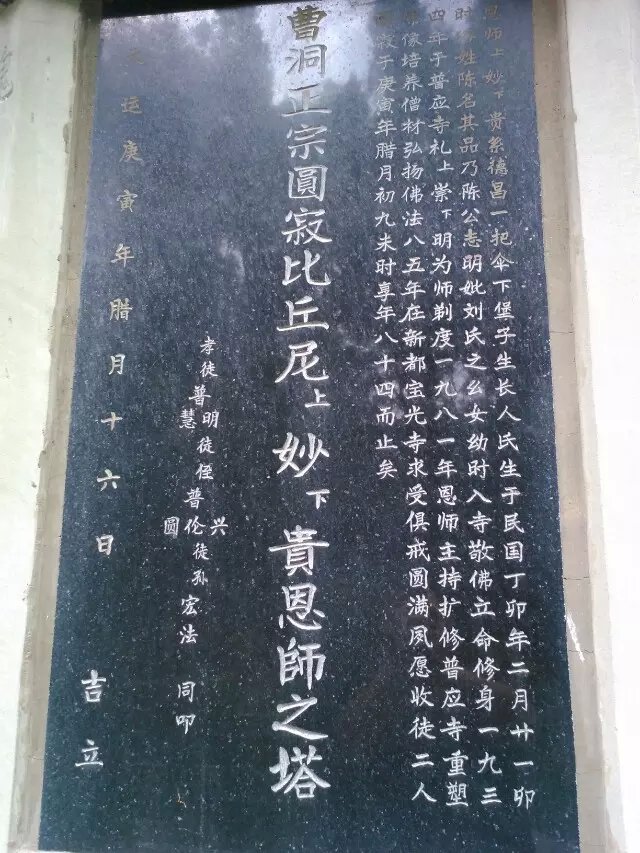 恩师上妙下贵系德昌一把伞下堡子生长人氏生于民国丁卯年二月廿一卯
时俗姓陈名其品乃陈公志明妣刘氏之幺女幼时入寺敬佛立命修身一九三
四年于普应寺礼上崇下明为师剃度一九八一年恩师主持扩修普应寺重塑
佛像培养僧材弘扬佛法八五年在新都宝光寺求受俱戒圆满夙愿收徒二人
寂于庚寅年腊月初九未时享年八十四而止矣
曹洞正宗圓寂比丘尼上妙下貴恩師之塔
孝徒普明慧徒侄普伦兴圆徒孙宏法同叩
天运庚寅年腊月十六日吉立